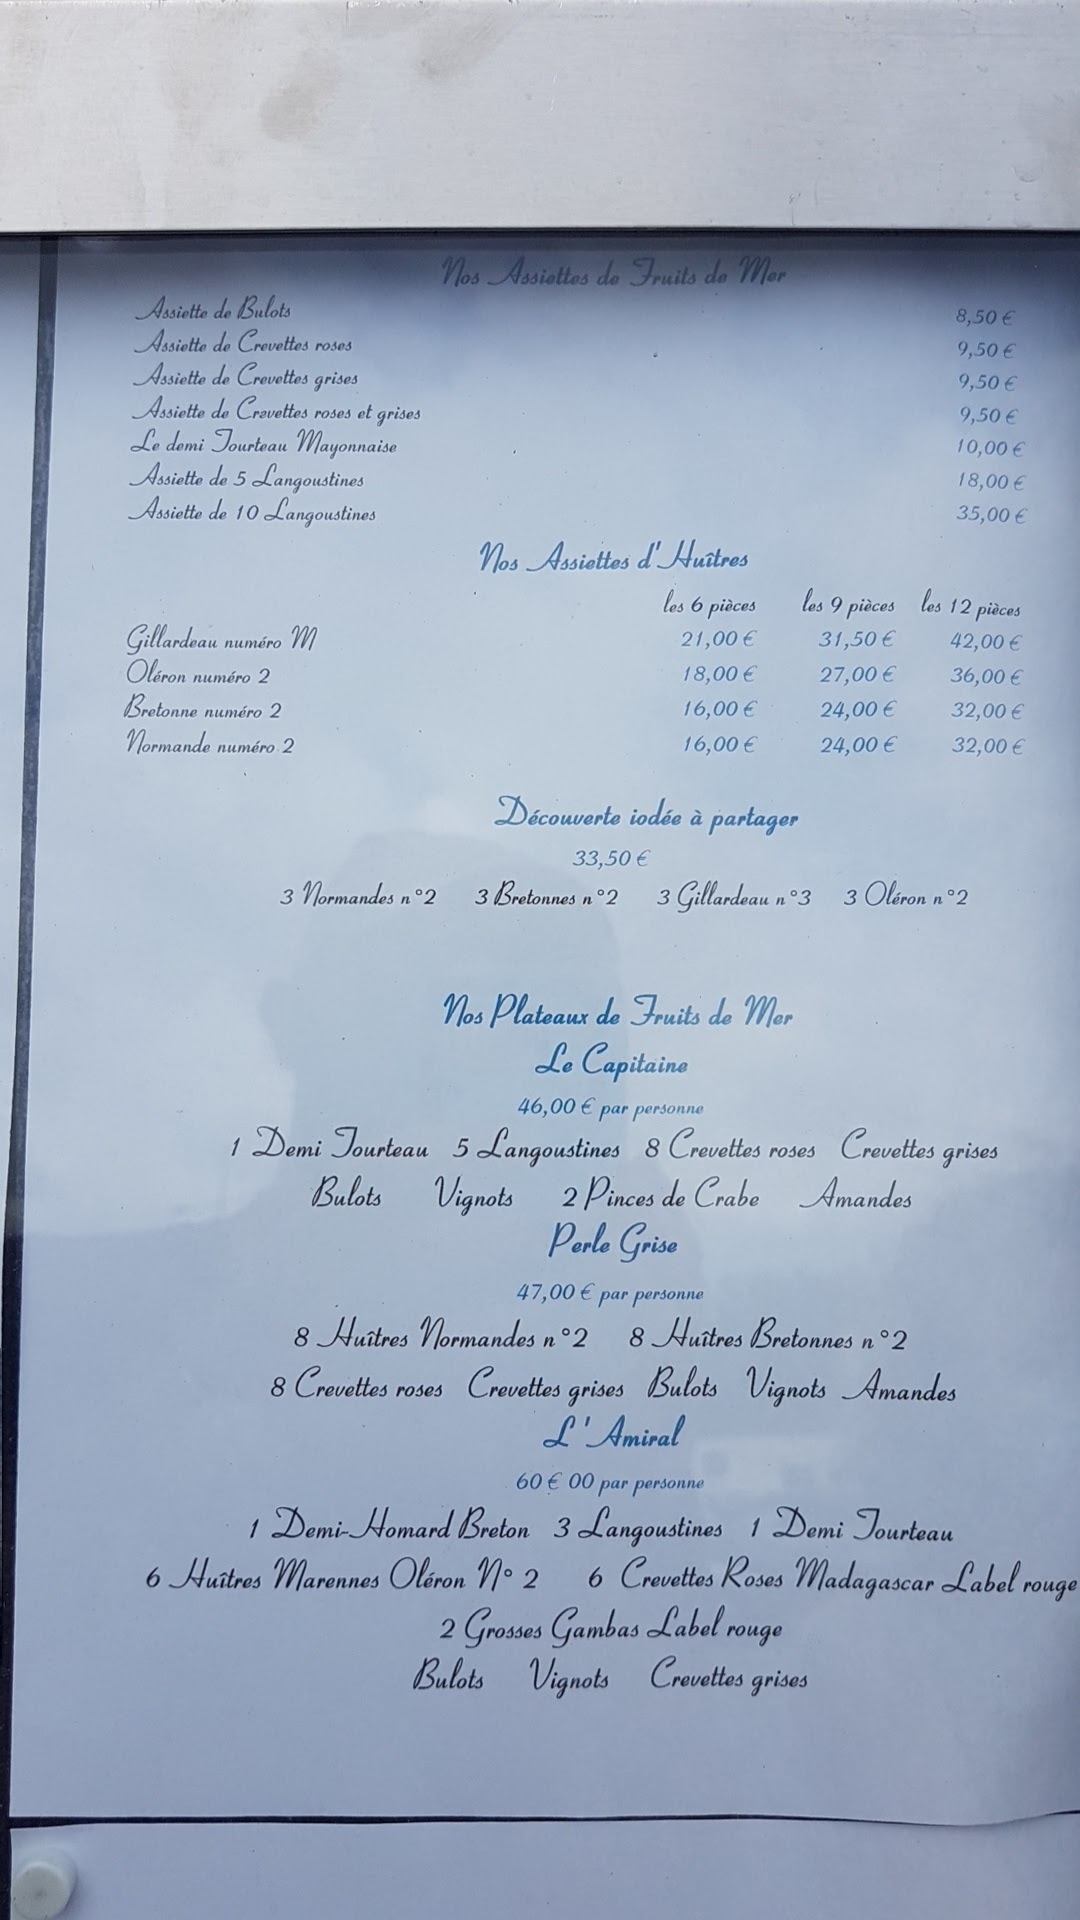 Nos Assiettes de Fruits de Mer
Assiette de Bulots 8,50 €
Assiette de Crevettes roses 9,50 €
Assiette de Crevettes grises 9,50 €
Assiette de Crevettes roses et grises 9,50 €
Le demi Tourteau Mayonnaise 10,00 €
Assiette de 5 Langoustines 18,00 €
Assiette de 10 Langoustines 35,00 €
Nos Assiettes d'Huîtres
les 6 pièces les 9 pièces les 12 pièces
Gillardeau numéro M 21,00 € 31,50 € 42,00 €
Oléron numéro 2 18,00 € 27,00 € 36,00 €
Bretonne numéro 2 16,00 € 24,00 € 32,00 €
Normande numéro 2 16,00 € 24,00 € 32,00 €
Découverte iodée à partager
33,50 €
3 Normandes n°2 3 Bretonnes n°2 3 Gillardeau n°3 3 Oléron n°2
Nos Plateaux de Fruits de Mer
Le Capitaine
46,00 € par personne
1 Demi Tourteau 5 Langoustines 8 Crevettes roses Crevettes grises
Bulots Vignots 2 Pinces de Crabe Amandes
Perle Grise
47,00 € par personne
8 Huîtres Normandes n°2 8 Huîtres Bretonnes n°2
8 Crevettes roses Crevettes grises Bulots Vignots Amandes
L'Amiral
60 € 00 par personne
1 Demi-Homard Breton 3 Langoustines 1 Demi Tourteau
6 Huîtres Marennes Oléron N° 2 6 Crevettes Roses Madagascar Label rouge
2 Grosses Gambas Label rouge
Bulots Vignots Crevettes grises